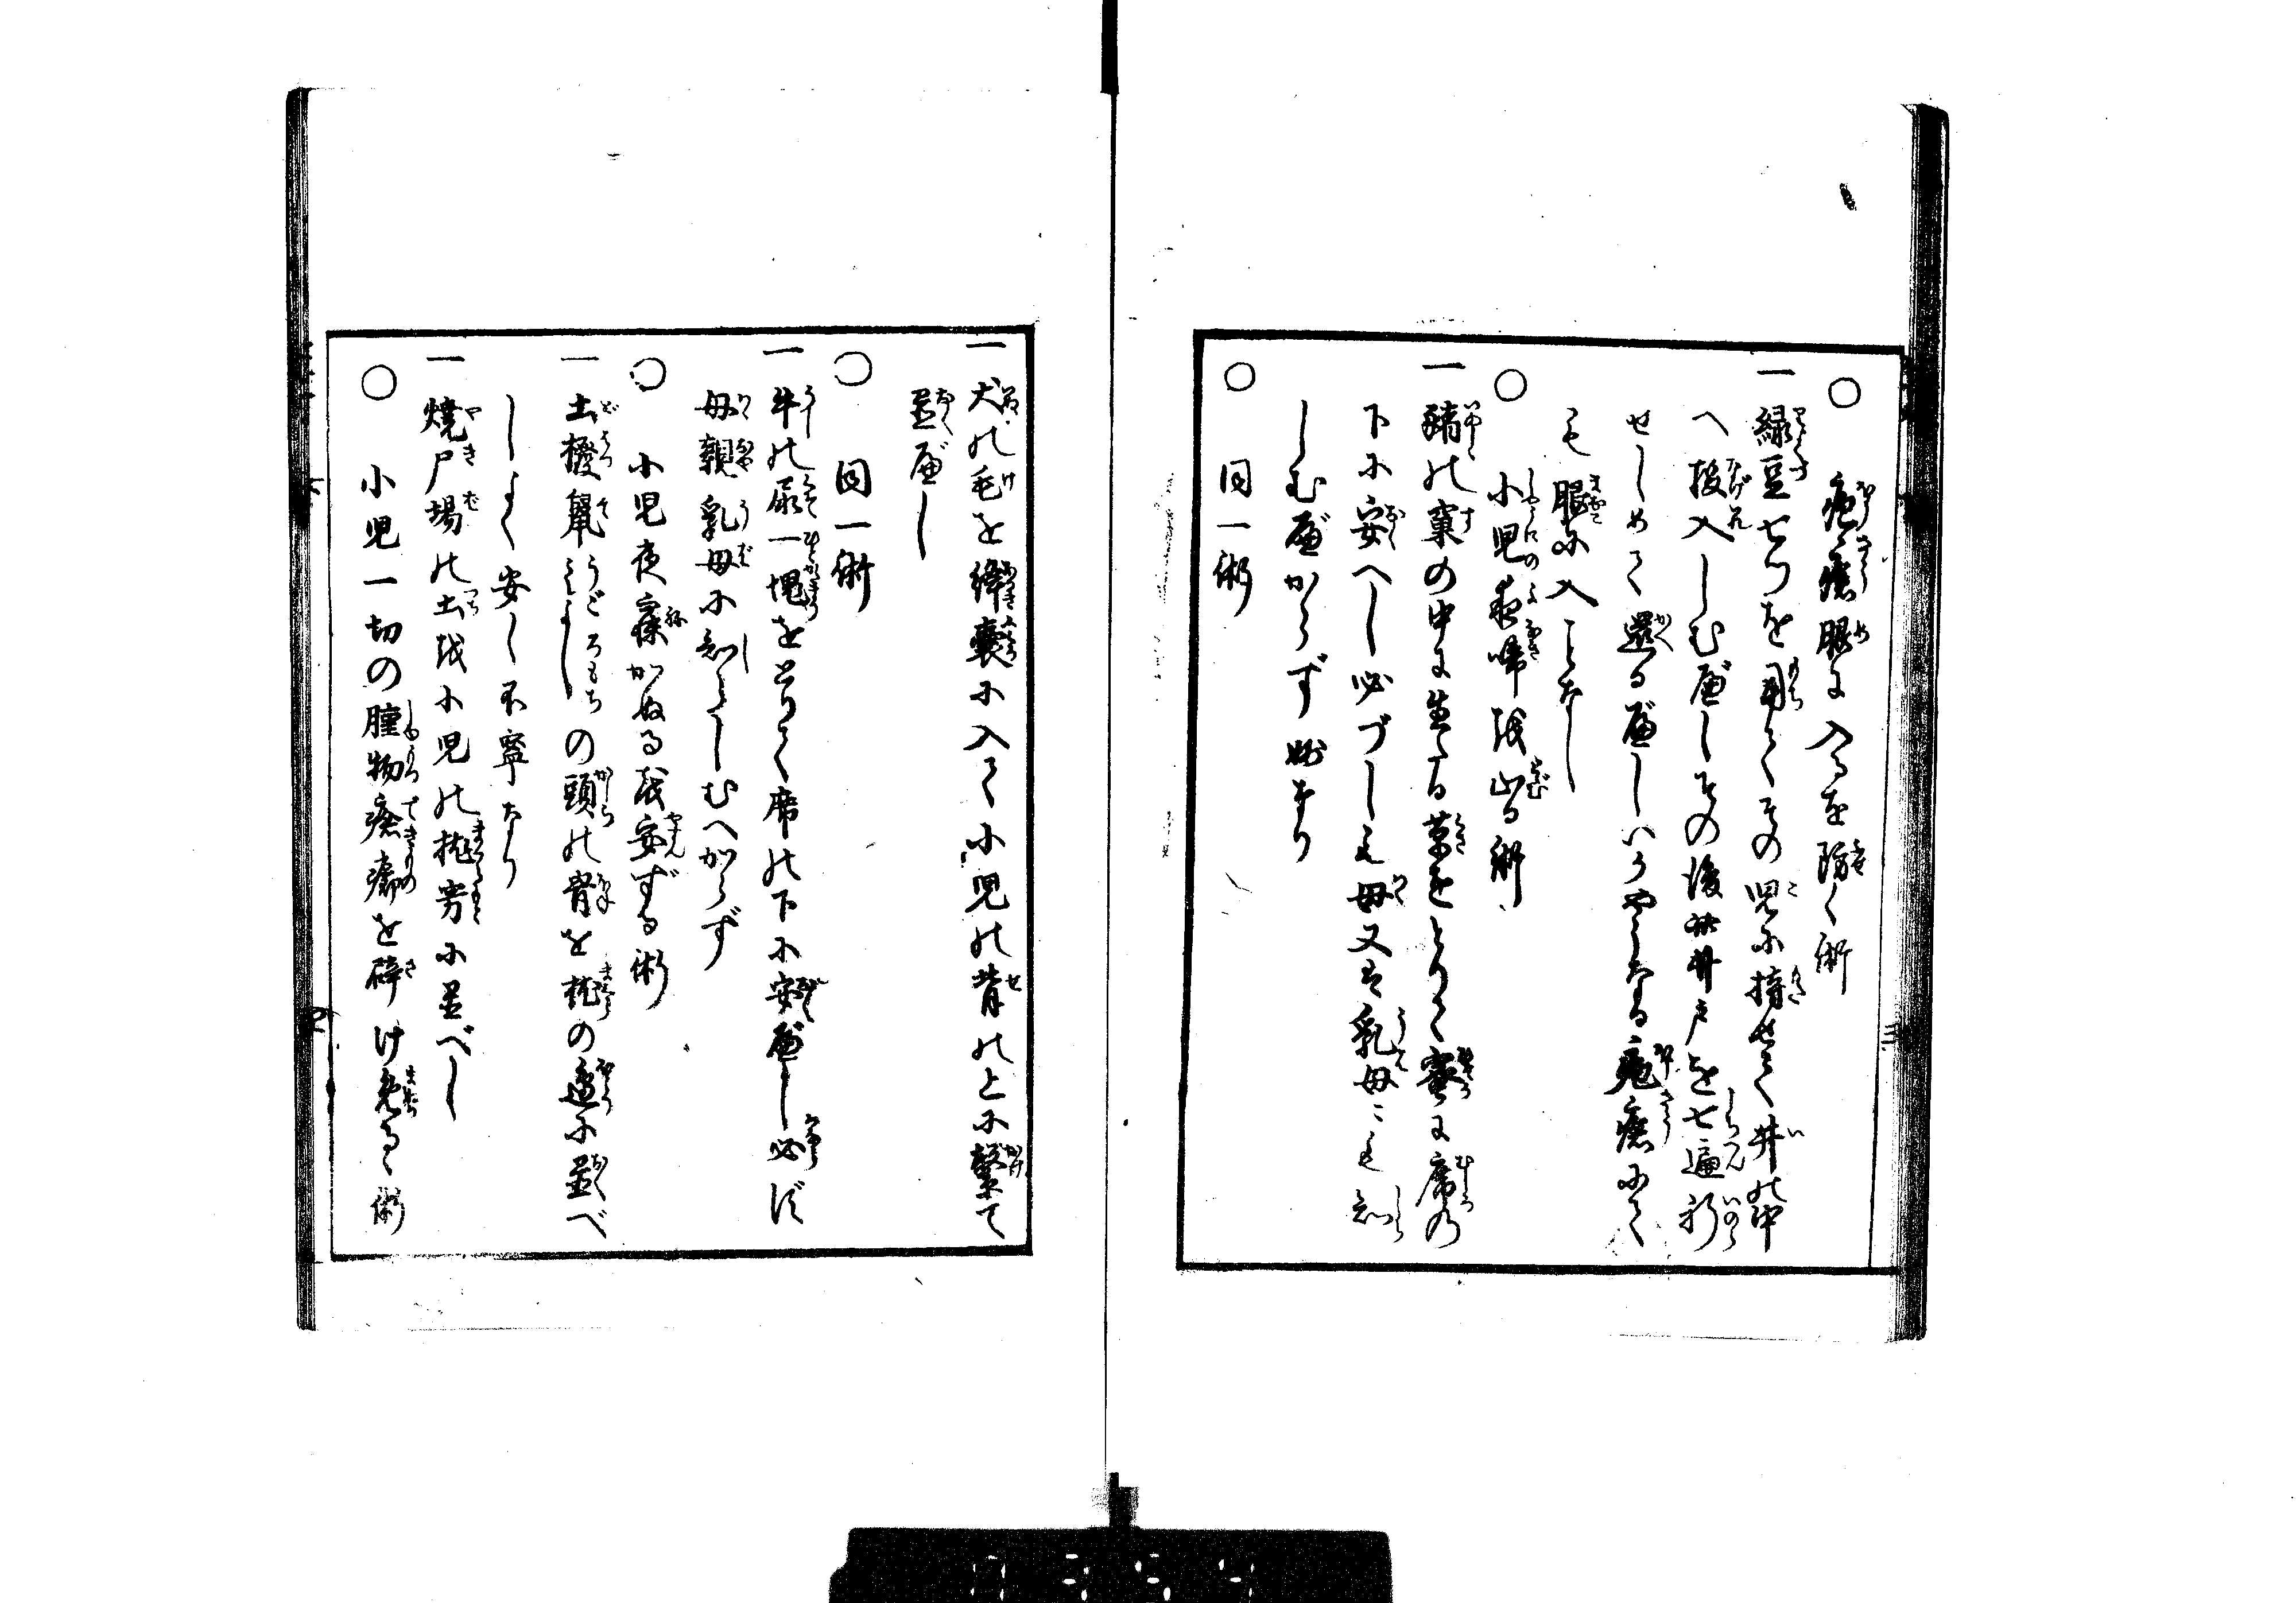 ○ 疱瘡眼に入るを防く術
一 緑豆七つを用てその児に持せて井の中
へ投入しむべしその後井戸を七遍祈
せしめて還るべしいかやうなる疱瘡にて
も眼に入ことなし
○ 小児夜啼を止る術
一 猪の窠の中に生たる草をとりて蜜に席の
下に安へし必づしも母又は乳母にも知
しむべからず妙なり
○ 同一術
一 犬の毛を絳嚢に入て小児の背の上に繫て
置べし
○ 同一術
一 牛の屎一塊をとりて席の下に安べし必ず
母親乳母に知らしむへからず
○ 小児夜寐かぬるを安ずる術
一 土撥鼠うごろもちの頭の骨を枕の邉に置べ
しよく安し不寧なり
一 焼尸場の土を小児の枕旁に置べし
○ 小児一切の腫物瘡癤を砕け免るゝ術